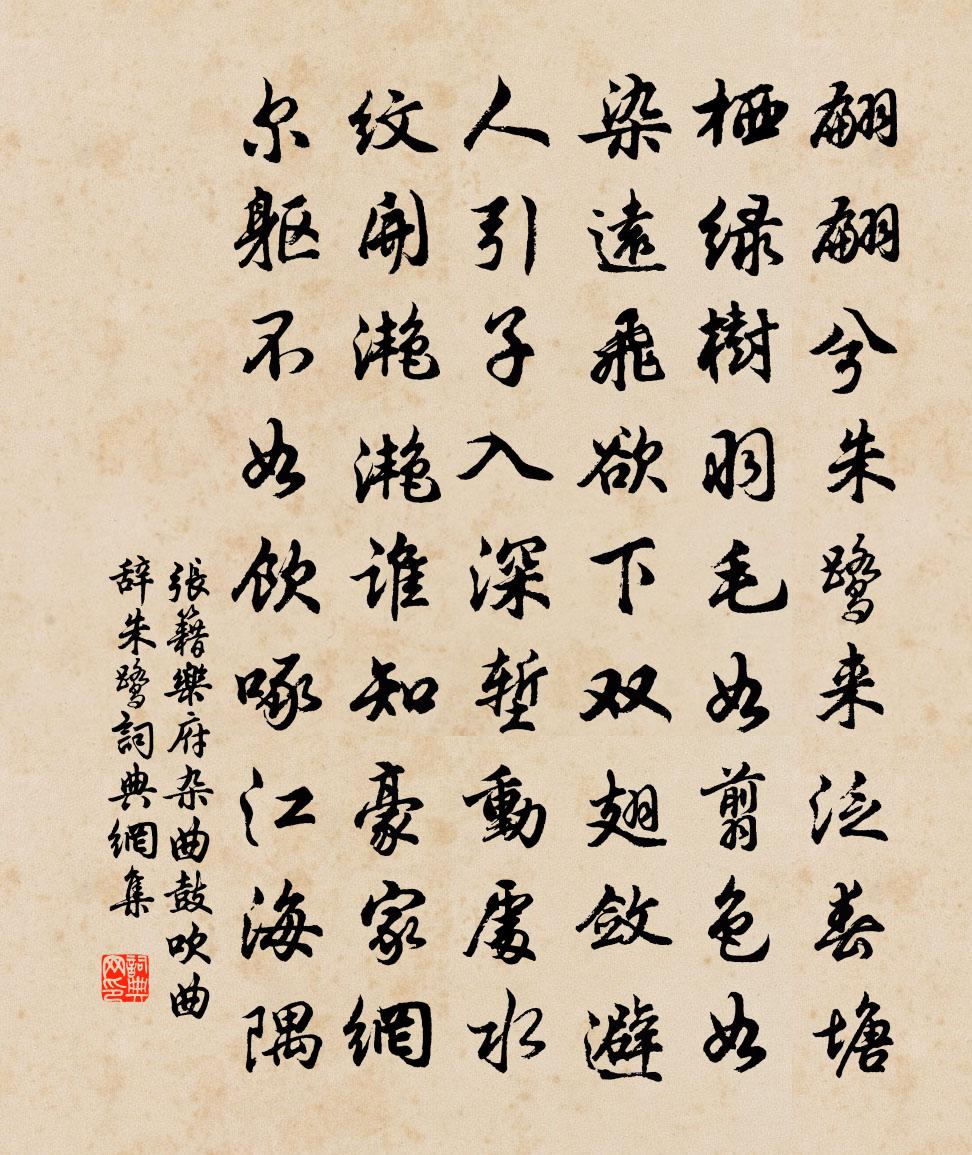 翩翩兮朱鹭来泛春塘
栖绿樹羽毛如剪色如
染遠飛欲下双翅斂避
人引子入深塹動處水
纹開灔灔谁知豪家網
尔軀不如饮啄江海隅
張籍樂府杂曲鼓吹曲
辞朱鹭詞典網集
詞典网印